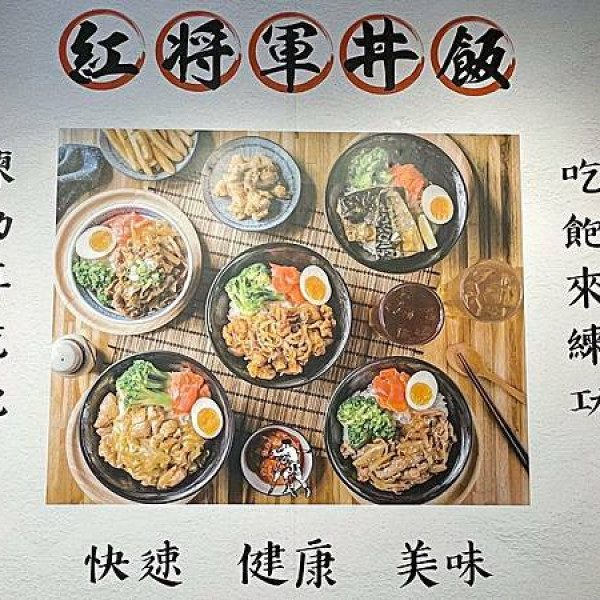 紅将軍丼飯
吃飽來練功
快速 健康 美味